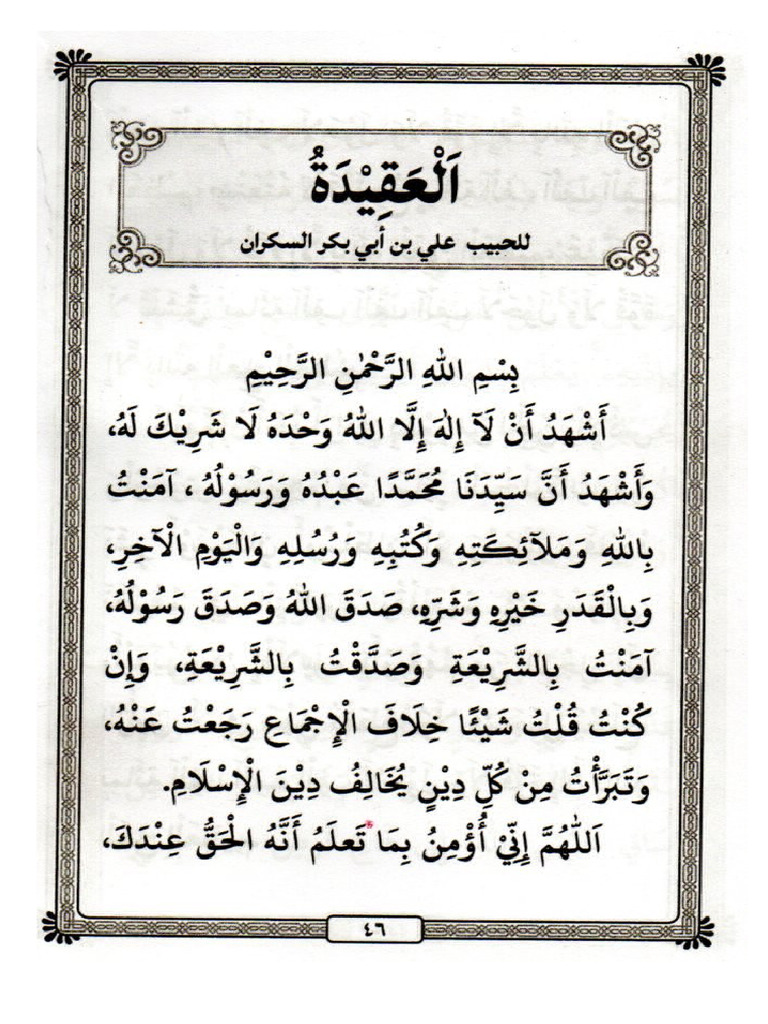 اَلْعَقِيْدَةُ
للحبيب علي بن أبي بكر السكران
بِسْمِ اللهِ الرَّحْمٰنِ الرَّحِيْمِ
أَشْهَدُ أَنْ لَآ إِلٰهَ إِلَّا اللهُ وَحْدَهُ لَا شَرِيْكَ لَهُ،
وَأَشْهَدُ أَنَّ سَيِّدَنَا مُحَمَّدًا عَبْدُهُ وَرَسُوْلُهُ ، آمَنْتُ
بِاللهِ وَمَلَآئِكَتِهِ وَكُتُبِهِ وَرُسُلِهِ وَالْيَوْمِ الْآخِرِ،
وَبِالْقَدَرِ خَيْرِهِ وَشَرِّهِ، صَدَقَ اللهُ وَصَدَقَ رَسُوْلُهُ،
آمَنْتُ بِالشَّرِيْعَةِ وَصَدَّقْتُ بِالشَّرِيْعَةِ، وَإِنْ
كُنْتُ قُلْتُ شَيْئًا خِلَافَ الْإِجْمَاعِ رَجَعْتُ عَنْهُ،
وَتَبَرَّأْتُ مِنْ كُلِّ دِيْنٍ يُخَالِفُ دِيْنَ الْإِسْلَامِ.
اَللّٰهُمَّ إِنِّيْ أُؤْمِنُ بِمَا تَعلَمُ أَنَّهُ الْحَقُّ عِنْدَكَ،
٤٦